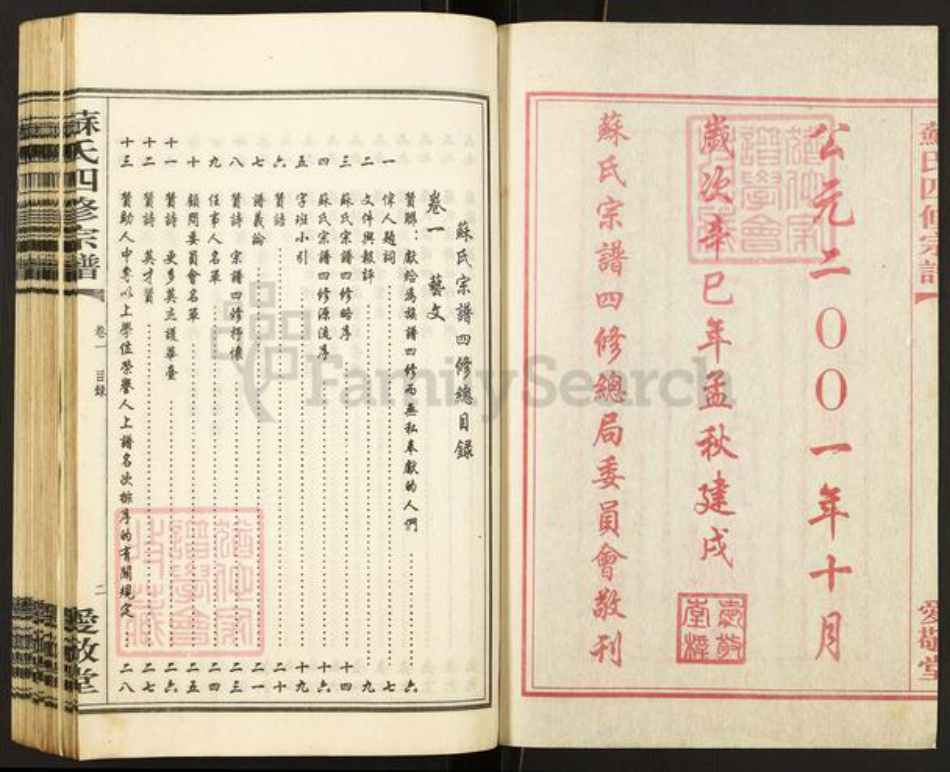 蘇氏四修宗譜
愛敬堂
公元二〇〇一年十月
歲次辛巳年孟秋建戌
蘇氏宗譜四修總局委員會敬刊
愛敬堂梓
蘇氏宗譜四修總目錄
卷一 藝文
贊聯:獻給為族譜四修而無私奉獻的人們 六
一 偉人題詞 七
二 文件與報評 九
三 蘇氏宗譜四修略序 十四
四 蘇氏宗譜四修源流序 十六
五 字班小引 十九
六 贊語 二十
七 譜義論 二一
八 贊詩 宗譜四修抒懷 二三
九 任事人名單 二四
十 顧問委員會名單 二五
十一 贊詩 更多英杰護華臺 二六
十二 贊詩 英才贊 二七
十三 贊助人中專以上學位榮譽人上譜名次排序的有關規定 二八
蘇氏四修宗譜
卷一 目錄
二
愛敬堂
FamilySearch